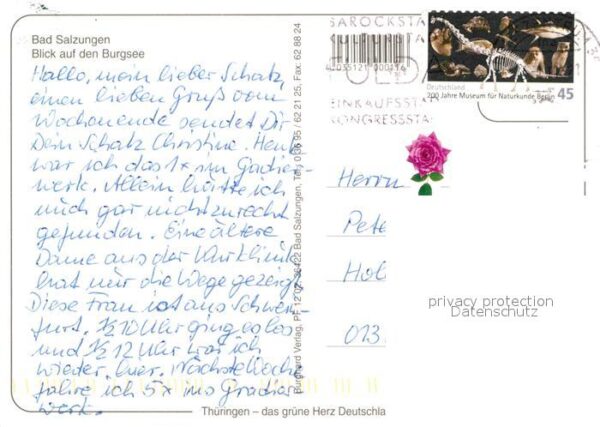 Bad Salzungen
Blick auf den Burgsee
Hallo, mein lieber Schatz,
einen lieben Gruß vom
Wochenende sendet Dir
Dein Schatz Christine. Heute
war ich das 1x im Gradier-
werk. Allein hätte ich
mich gar nicht zurecht
gefunden. Eine ältere
Dame aus der Kurklinik
hat mir die Wege gezeigt.
Diese Frau ist aus Schwein-
furt. ½10 Uhr ging es los
und ½12 Uhr war ich
wieder hier. Nächste Woche
fahre ich 5x ins Gradier-
werk.
Burghard Verlag, PF 12 02, 36422 Bad Salzungen, Tel. 0 36 95 / 62 21 25, Fax: 62 88 24
BAROCKSTA
4035121 000116
FULDA
EINKAUFSSTA
KONGRESSSTA
Deutschland
200 Jahre Museum für Naturkunde Berlin 45
Herrn
Pete
Hol
013
privacy protection
Datenschutz
Thüringen – das grüne Herz Deutschla